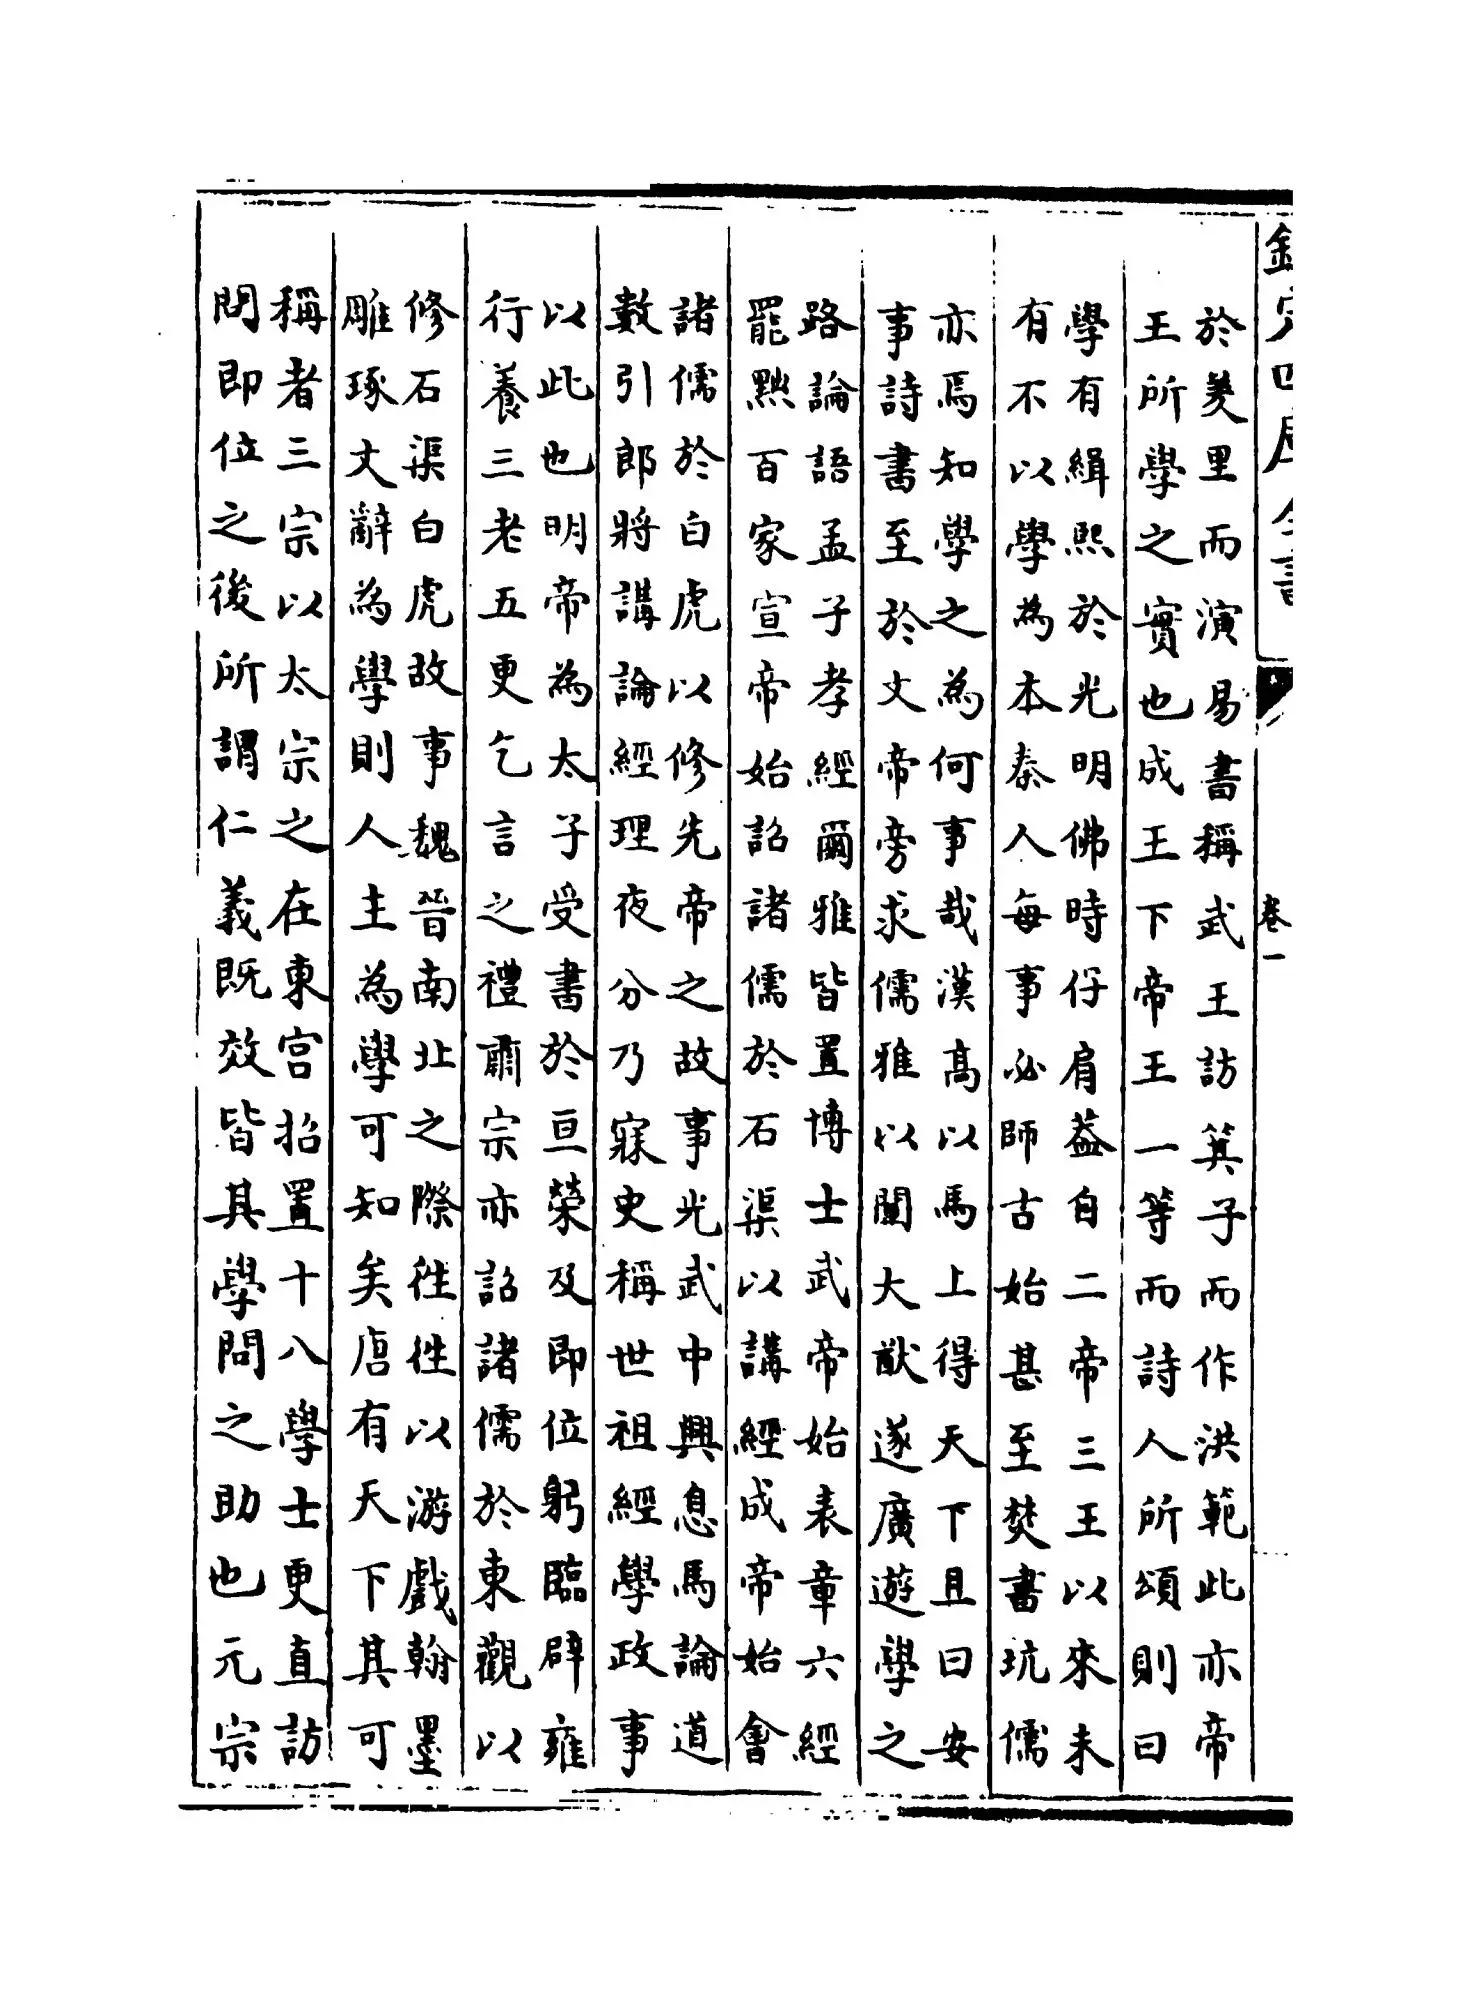 欽定四庫全書
卷一
於羑里而演易書稱武王訪箕子而作洪範此亦帝
王所學之實也成王下帝王一等而詩人所頌則曰
學有緝熙於光明佛時仔肩葢自二帝三王以來未
有不以學為本秦人每事必師古始甚至焚書坑儒
亦焉知學之為何事哉漢高以馬上得天下且曰安
事詩書至於文帝旁求儒雅以闡大猷遂廣遊學之
路論語孟子孝經爾雅皆置博士武帝始表章六經
罷黜百家宣帝始詔諸儒於石渠以講經成帝始會
諸儒於白虎以修先帝之故事光武中興息馬論道
數引郎將講論經理夜分乃寐史稱世祖經學政事
以此也明帝為太子受書於亘榮及即位躬臨辟雍
行養三老五更乞言之禮肅宗亦詔諸儒於東觀以
修石渠白虎故事魏晉南北之際徃徃以游戲翰墨
雕琢文辭為學則人主為學可知矣唐有天下其可
稱者三宗以太宗之在東宫招置十八學士更直訪
問即位之後所謂仁義既效皆其學問之助也元宗